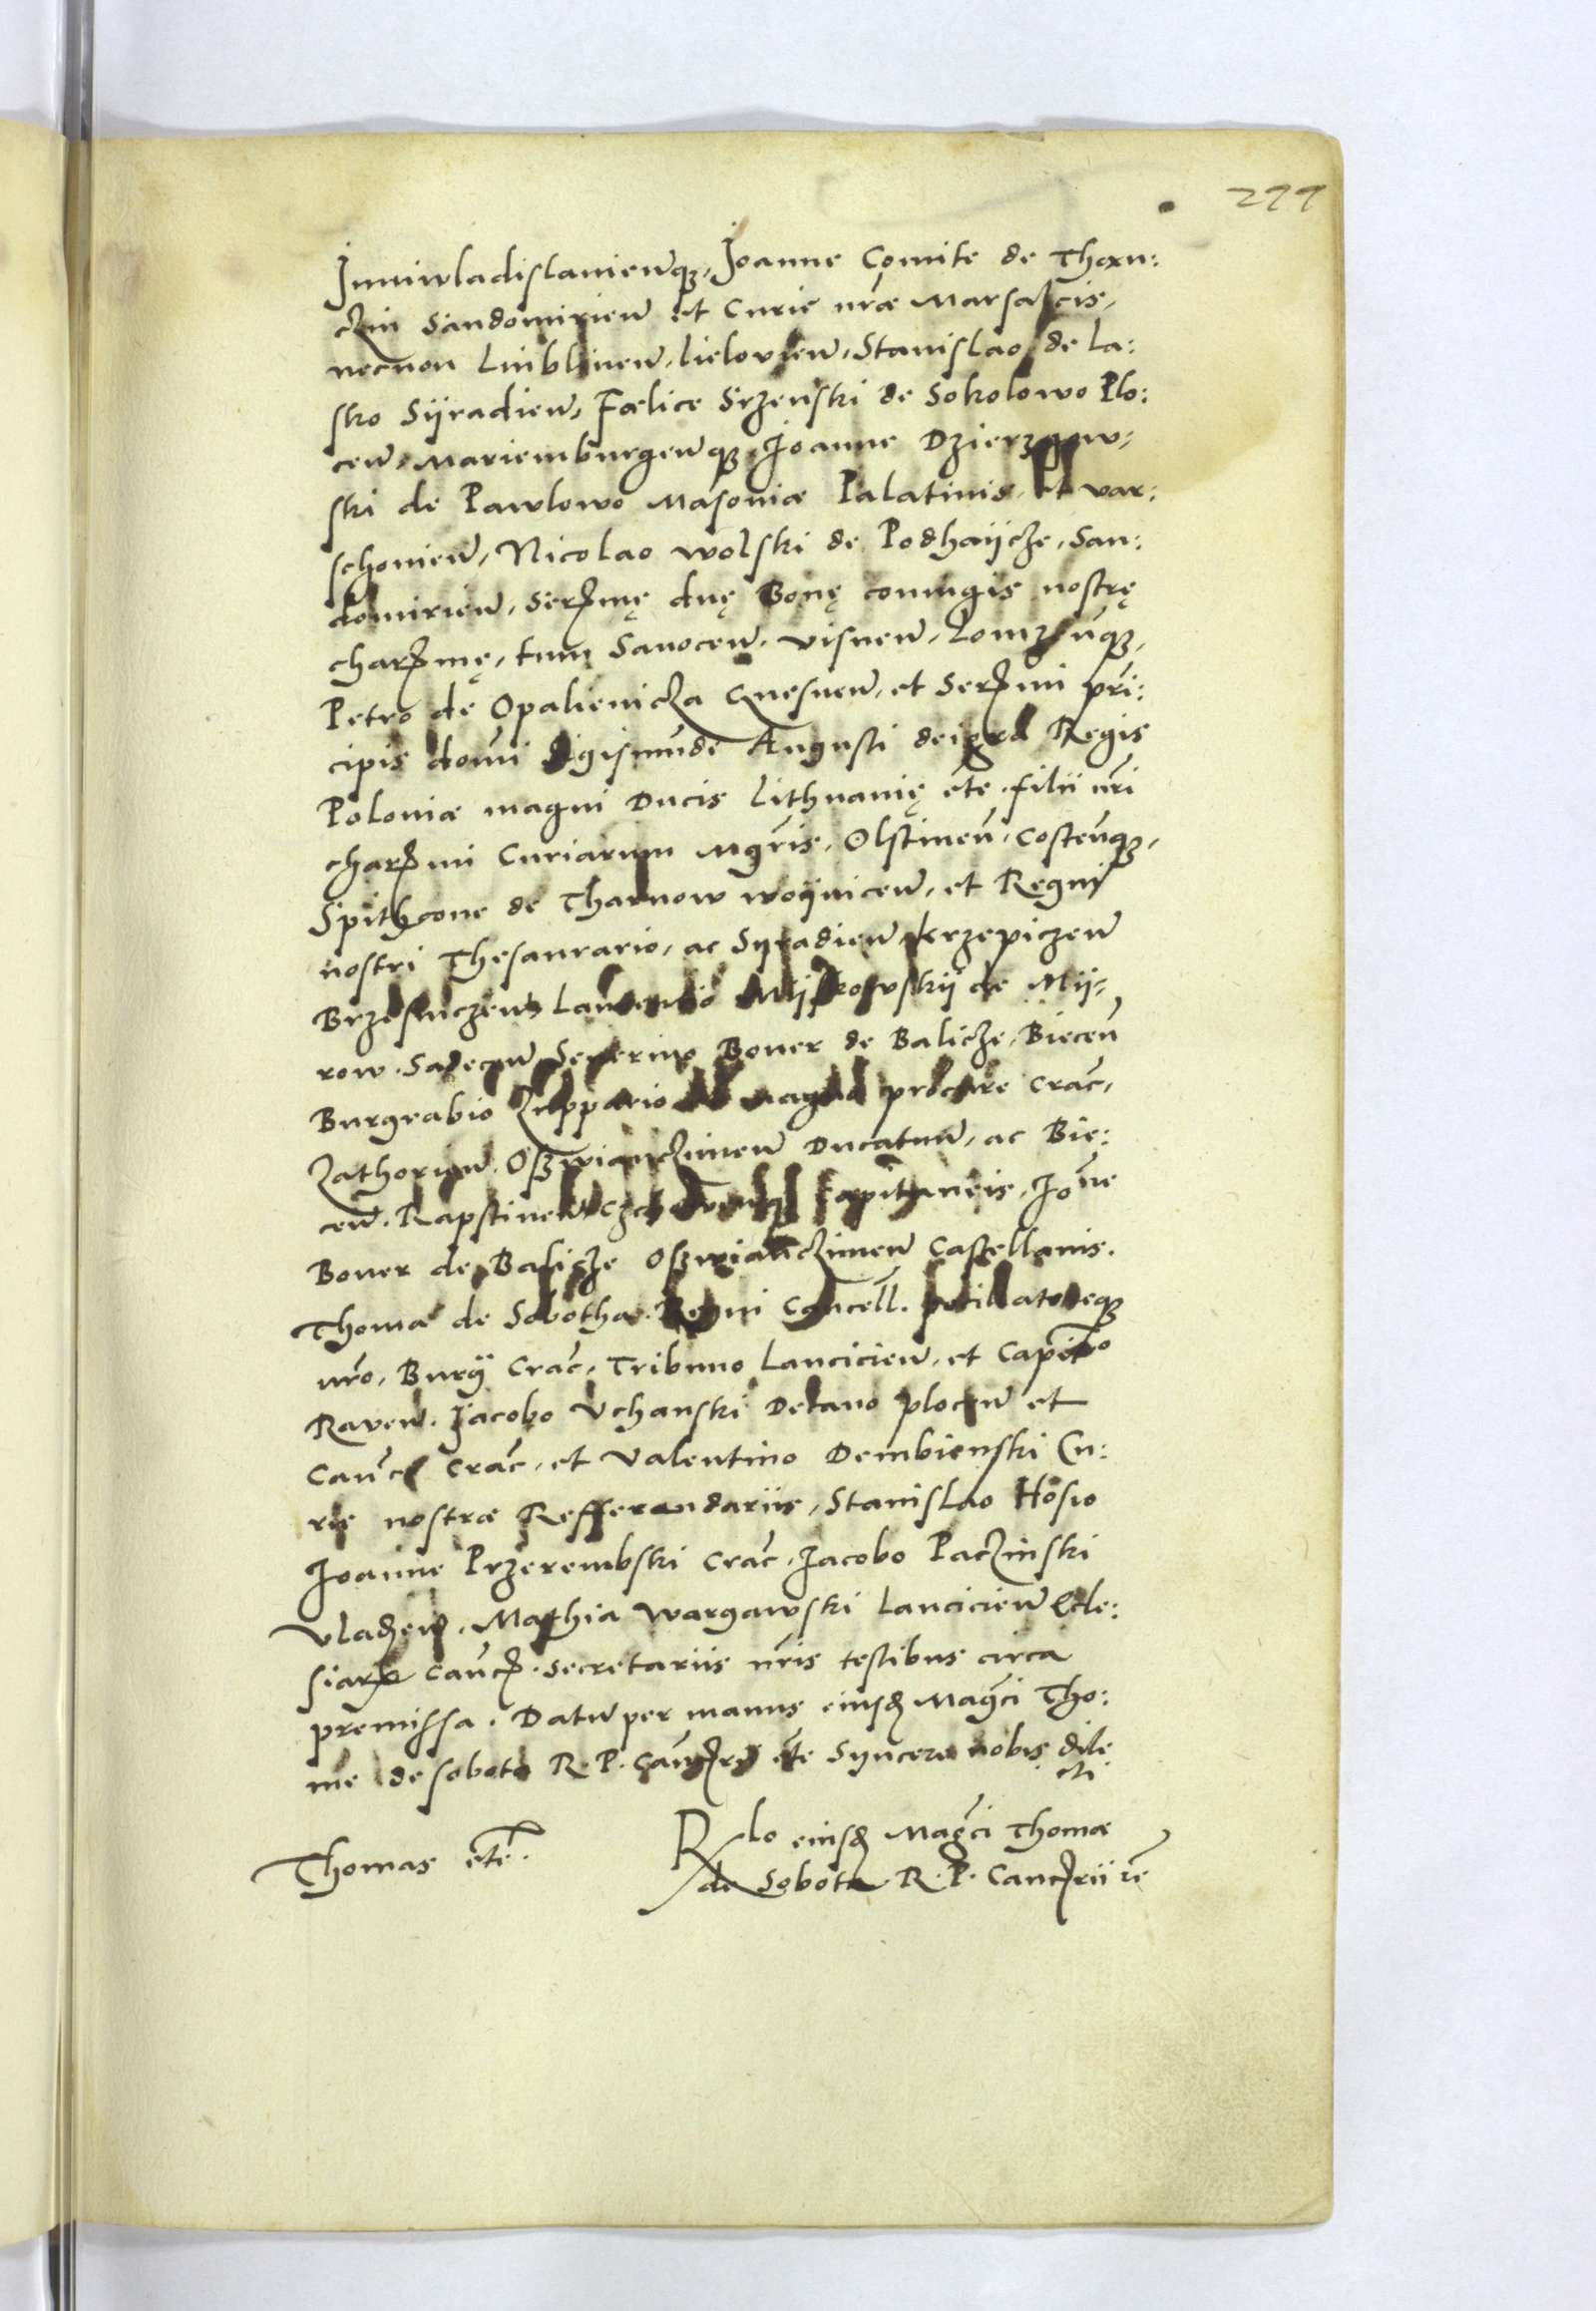 277
Juniwladislauienqз, Joanne Comite de Thxn:
czin Sandomirien et Curie nrae Marsalcis,
necnon Lublinen, Lielovien, Stanislao de La:
sko Syradien, Foelice Srzenski de Sokolowo Plo:
cen, Mariemburgenqз, Joanne Dzierzgow:
ski de Pawlowo Masoniae Palatinis, et var:
schonien, Nicolao wolski de Podhaijcze, San:
domirien, Serzmę dnę Bonę coniugis nostrę
charzmę, tum Sanocen, visnen, Lomzenqз,
Petro de Opalienicza Gnesnen, et Serzmi prin:
cipis domi Sigismundi Augusti dei gra Regis
Poloniae magni Ducis Lithuanię etc. filii nri
charzmi Curiarum Mgris, Olstinen, Costenqз,
Spithcone de Tharnow woynicen, et Regni
nostri Thesaurario, ac Syradien, krzepiczen
Brzesniczen Laurentio Mijskowskij de Mij:
row. Sadecen Severino Boner de Balicze, Biecen
Burgrabio Zuppario magno procure Crac,
Zathorien. Osswianczimen Ducatuu, ac Bie:
cen. Rapstinen Capitaneis, Joane
Boner de Balicze Osswianczimen Castellanis.
Thoma de Sobotha. Regni Cancell.
nro, Burgi Crac, Tribuno Lancicien, et Capito
Raven. Jacobo Vchanski Decano plocen et
Canc Crac, et Valentino Dembienski Cu:
rie nostrae Refferendariis, Stanislao Hosio
Joanne Przerembski Crac, Jacobo Paczinski
Vladen, Mathia Wargawski Lancicien Ecle:
siarz Canc. Secretariis nris testibus circa
premissa. Datu per manus eiusd Magci Tho:
me de Sobota R. P. Canczrij etc Syncere nobis dile
cti.
Thomas etc.
Rlo eiusd Magci Thomae
de Sobota R. P. Canczrii rc